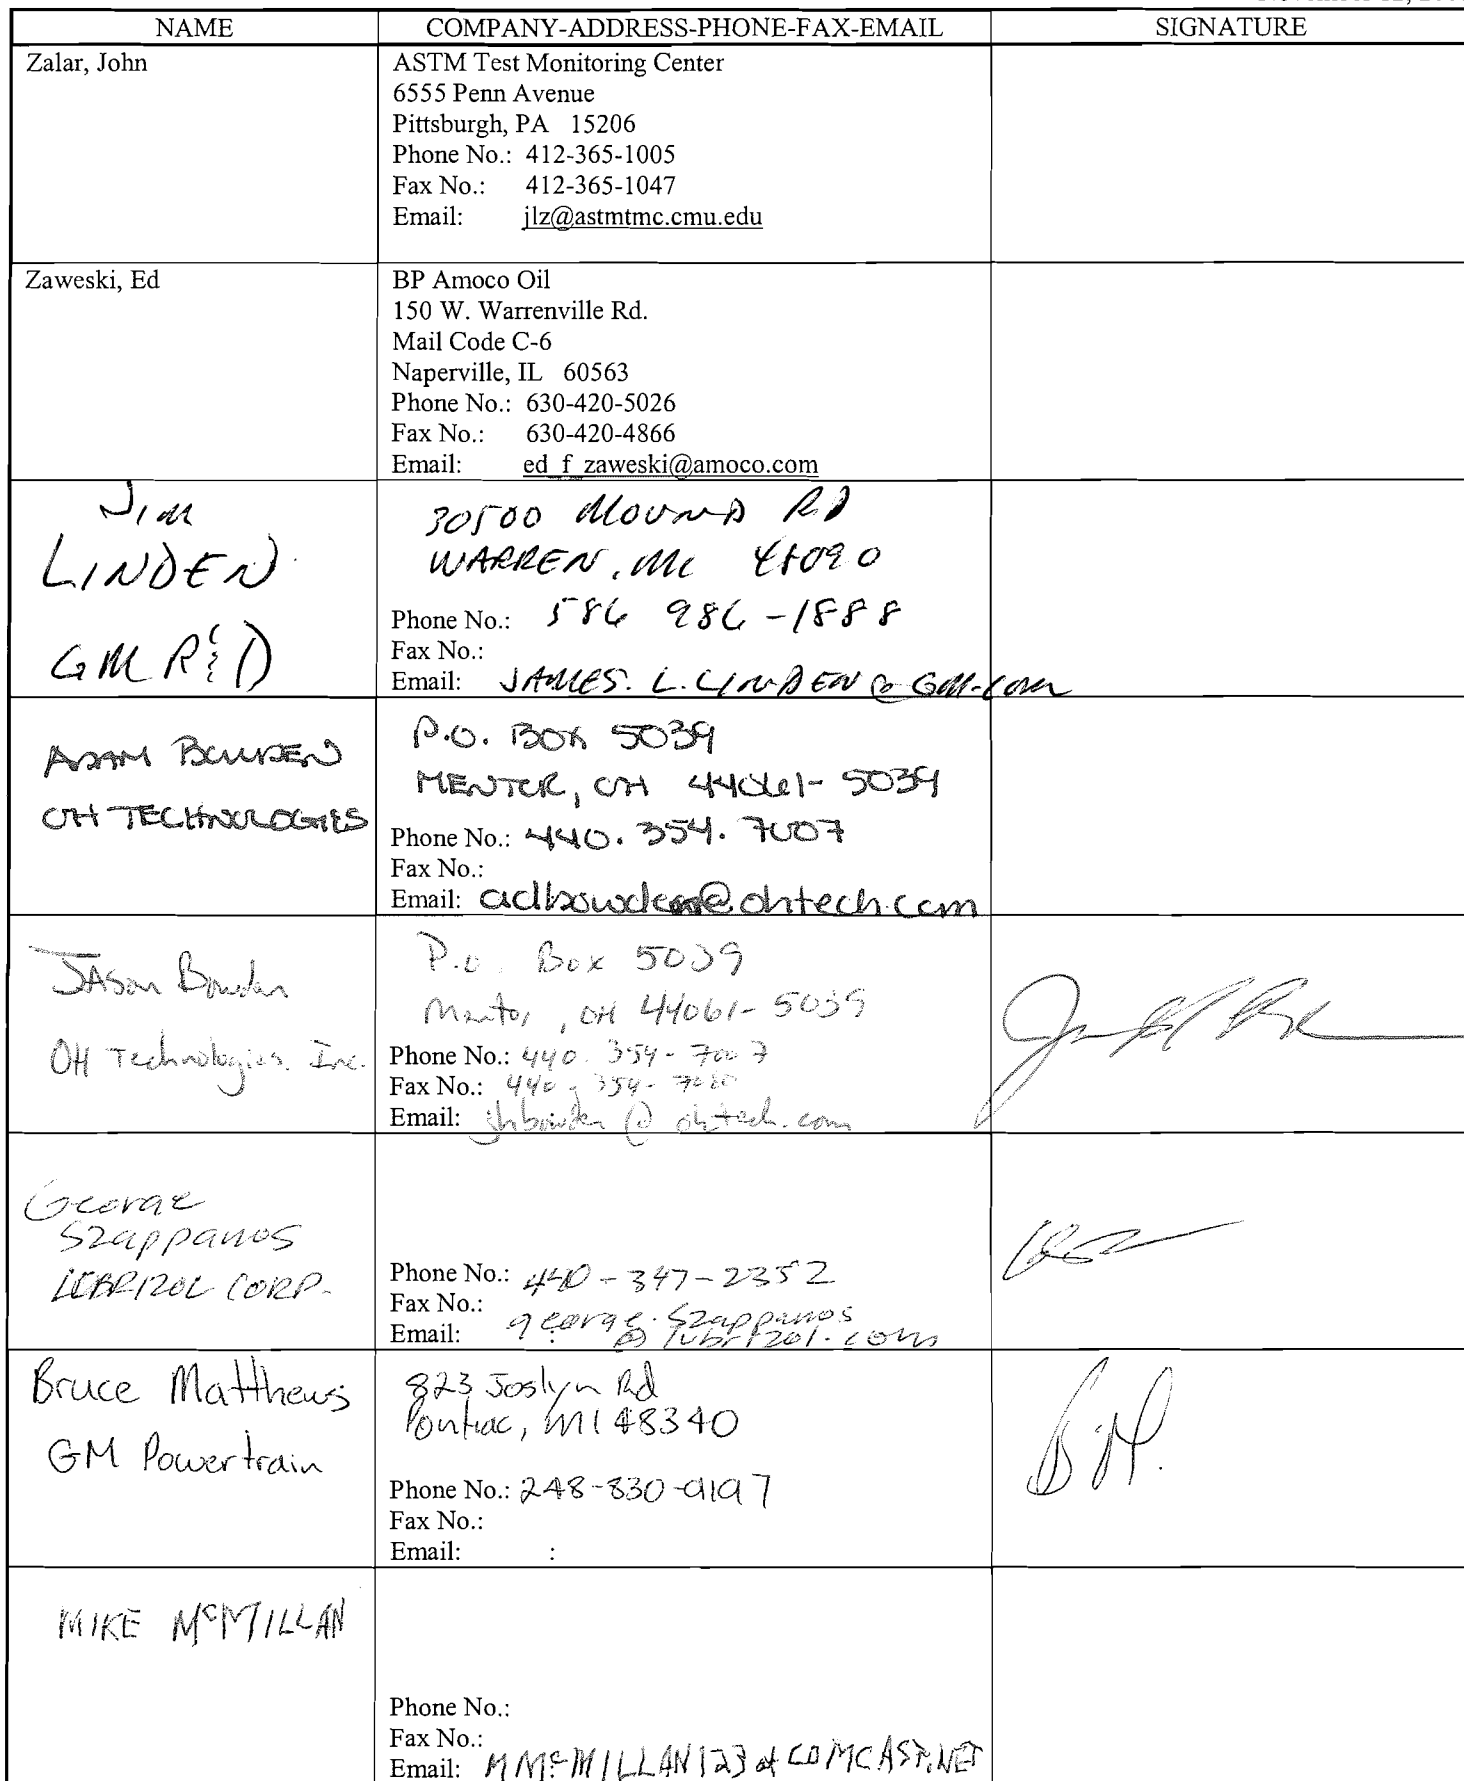 NAME COMPANY-ADDRESS-PHONE-FAX-EMAIL SIGNATURE
Zalar, John
ASTM Test Monitoring Center
6555 Penn Avenue
Pittsburgh, PA 15206
Phone No.: 412-365-1005
Fax No.: 412-365-1047
Email: jlz@astmtmc.cmu.edu
Zaweski, Ed
BP Amoco Oil
150 W. Warrenville Rd.
Mail Code C-6
Naperville, IL 60563
Phone No.: 630-420-5026
Fax No.: 630-420-4866
Email: ed_f_zaweski@amoco.com
JIM
LINDEN
GM R&D
30500 MOUND RD
WARREN, MI 48090
Phone No.: 586 986-1888
Fax No.:
Email: JAMES.L.LINDEN@GM.COM
ADAM BOWDEN
OH TECHNOLOGIES
P.O. BOX 5039
MENTOR, OH 44061-5039
Phone No.: 440.354.7007
Fax No.:
Email: adbowden@ohtech.com
JASon Bowden
OH Technologies, Inc.
P.O. Box 5039
Mentor, OH 44061-5039
Phone No.: 440.354-7007
Fax No.: 440-354-7080
Email: jhbowden@ohtech.com
George
Szappanos
LUBRIZOL CORP.
Phone No.: 440-347-2352
Fax No.:
Email: george.szappanos
@lubrizol.com
Bruce Matthews
GM Powertrain
823 Joslyn Rd
Pontiac, MI 48340
Phone No.: 248-830-9197
Fax No.:
Email: :
B.M.
MIKE McMILLAN
Phone No.:
Fax No.:
Email: MMcMILLAN123 at COMCAST.NET